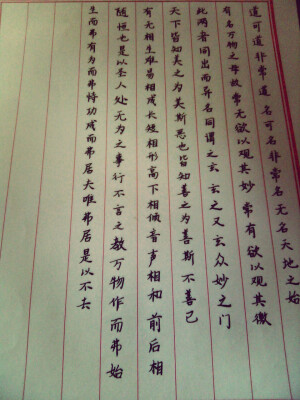 道可道非常道名可名非常名无名天地之始
有名万物之母故常无欲以观其妙常有欲以观其徼
此两者同出而异名同谓之玄玄之又玄众妙之门
天下皆知美之为美斯恶也皆知善之为善斯不善已
有无相生难易相成长短相形高下相倾音声相和前后相
随恒也是以圣人处无为之事行不言之教万物作而弗始
生而弗有为而弗恃功成而弗居夫唯弗居是以不去